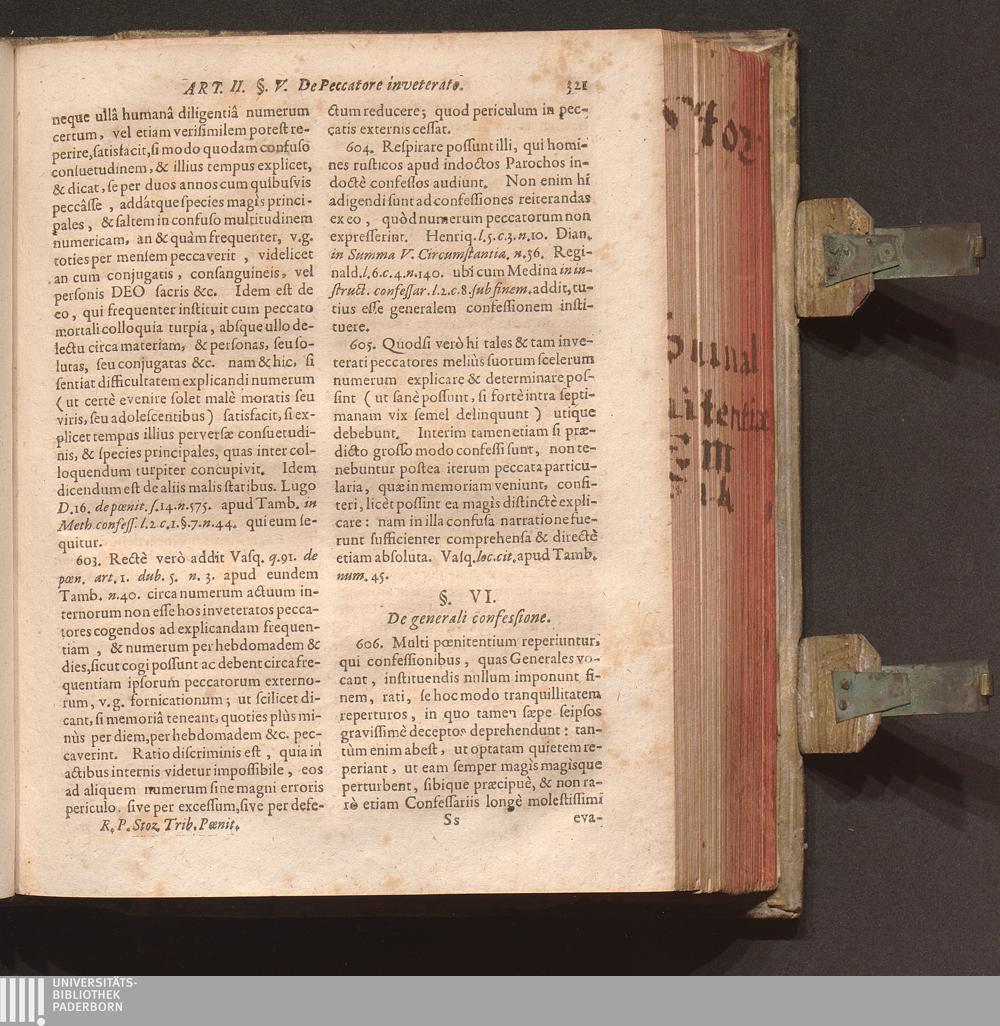 ART. II. §. V. De Peccatore inveterato. 321
neque ullâ humanâ diligentiâ numerum
certum, vel etiam verisimilem potest re-
perire, satisfacit, si modo quodam confuso
consuetudinem, & illius tempus explicet,
& dicat, se per duos annos cum quibusvis
peccâsse, addátque species magis princi-
pales, & saltem in confuso multitudinem
numericam, an & quàm frequenter, v.g.
toties per mensem peccaverit, videlicet
an cum conjugatis, consanguineis, vel
personis DEO sacris &c. Idem est de
eo, qui frequenter instituit cum peccato
mortali colloquia turpia, absque ullo de-
lectu circa materiam, & personas, seu so-
lutas, seu conjugatas &c. nam & hic, si
sentiat difficultatem explicandi numerum
(ut certè evenire solet malè moratis seu
viris, seu adolescentibus) satisfacit, si ex-
plicet tempus illius perversæ consuetudi-
nis, & species principales, quas inter col-
loquendum turpiter concupivit. Idem
dicendum est de aliis malis statibus. Lugo
D.16. de pœnit. s.14.n.575. apud Tamb. in
Meth. confess. l.2.c.1.§.7.n.44. qui eum se-
quitur.
603. Rectè verò addit Vasq. q.91. de
pœn. art.1. dub. 5. n. 3. apud eundem
Tamb. n.40. circa numerum actuum in-
ternorum non esse hos inveteratos pecca-
tores cogendos ad explicandam frequen-
tiam, & numerum per hebdomadem &
dies, sicut cogi possunt ac debent circa fre-
quentiam ipsorum peccatorum externo-
rum, v.g. fornicationum; ut scilicet di-
cant, si memoriâ teneant, quoties plùs mi-
nùs per diem, per hebdomadem &c. pec-
caverint. Ratio discriminis est, quia in
actibus internis videtur impossibile, eos
ad aliquem numerum sine magni erroris
periculo sive per excessum, sive per defe-
R. P. Stoz, Trib. Pœnit.
ctum reducere; quod periculum in pec-
catis externis cessat.
604. Respirare possunt illi, qui homi-
nes rusticos apud indoctos Parochos in-
doctè confessos audiunt. Non enim hi
adigendi sunt ad confessiones reiterandas
ex eo, quòd numerum peccatorum non
expresserint. Henriq. l.5.c.3.n.10. Dian.
in Summa V. Circumstantia, n.36. Regi-
nald. l.6.c.4.n.140. ubi cum Medina in in-
struct. confessar. l.2.c.8. sub finem. addit, tu-
tius esse generalem confessionem insti-
tuere.
605. Quòdsi verò hi tales & tam inve-
terati peccatores meliùs suorum scelerum
numerum explicare & determinare pos-
sint (ut sanè possunt, si fortè intra septi-
manam vix semel delinquunt) utique
debebunt. Interim tamen etiam si præ-
dicto grosso modo confessi sunt, non te-
nebuntur postea iterum peccata particu-
laria, quæ in memoriam veniunt, confi-
teri, licèt possint ea magis distinctè expli-
care: nam in illa confusa narratione fue-
runt sufficienter comprehensa & directè
etiam absoluta. Vasq. loc. cit. apud Tamb.
num. 45.
§. VI.
De generali confessione.
606. Multi pœnitentium reperiuntur,
qui confessionibus, quas Generales vo-
cant, instituendis nullum imponunt fi-
nem, rati, se hoc modo tranquillitatem
reperturos, in quo tamen sæpe seipsos
gravissimè deceptos deprehendunt: tan-
tùm enim abest, ut optatam quietem re-
periant, ut eam semper magis magisque
perturbent, sibique præcipuè, & non ra-
rò etiam Confessariis longè molestissimi
Ss eva-
UNIVERSITÄTS-
BIBLIOTHEK
PADERBORN